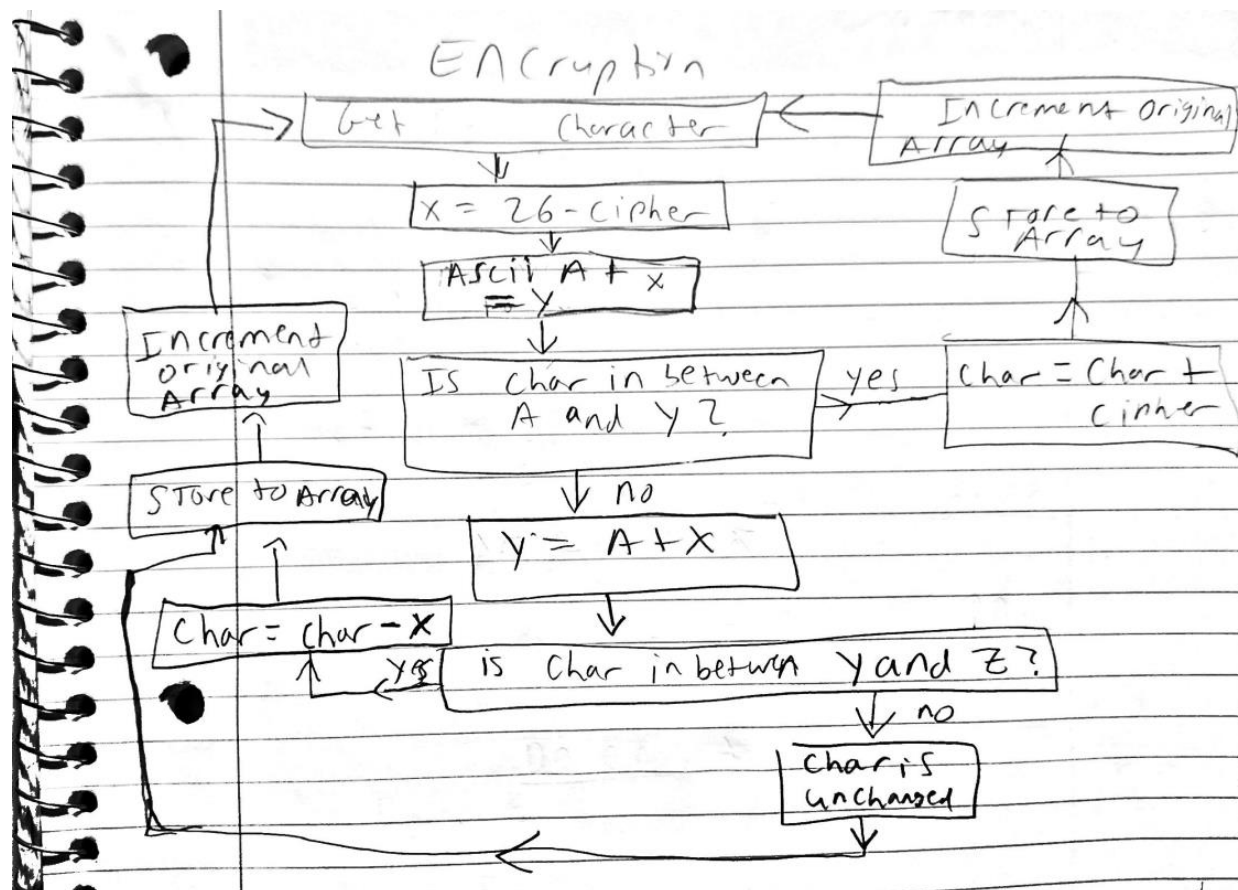 ENCruption
Get Character
Increment original
Array
x = 26-cipher
Store to
Array
Ascii A + x
= y
Increment
original
Array
Is char in between
A and y?
yes
Char = Char +
cipher
no
Store to Array
y = A + X
Char = char - x
yes
is char in between y and Z?
no
Char is
unchanged